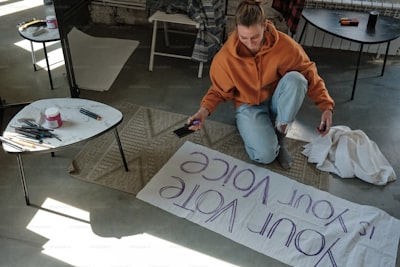 Your Vote
is Your Voice